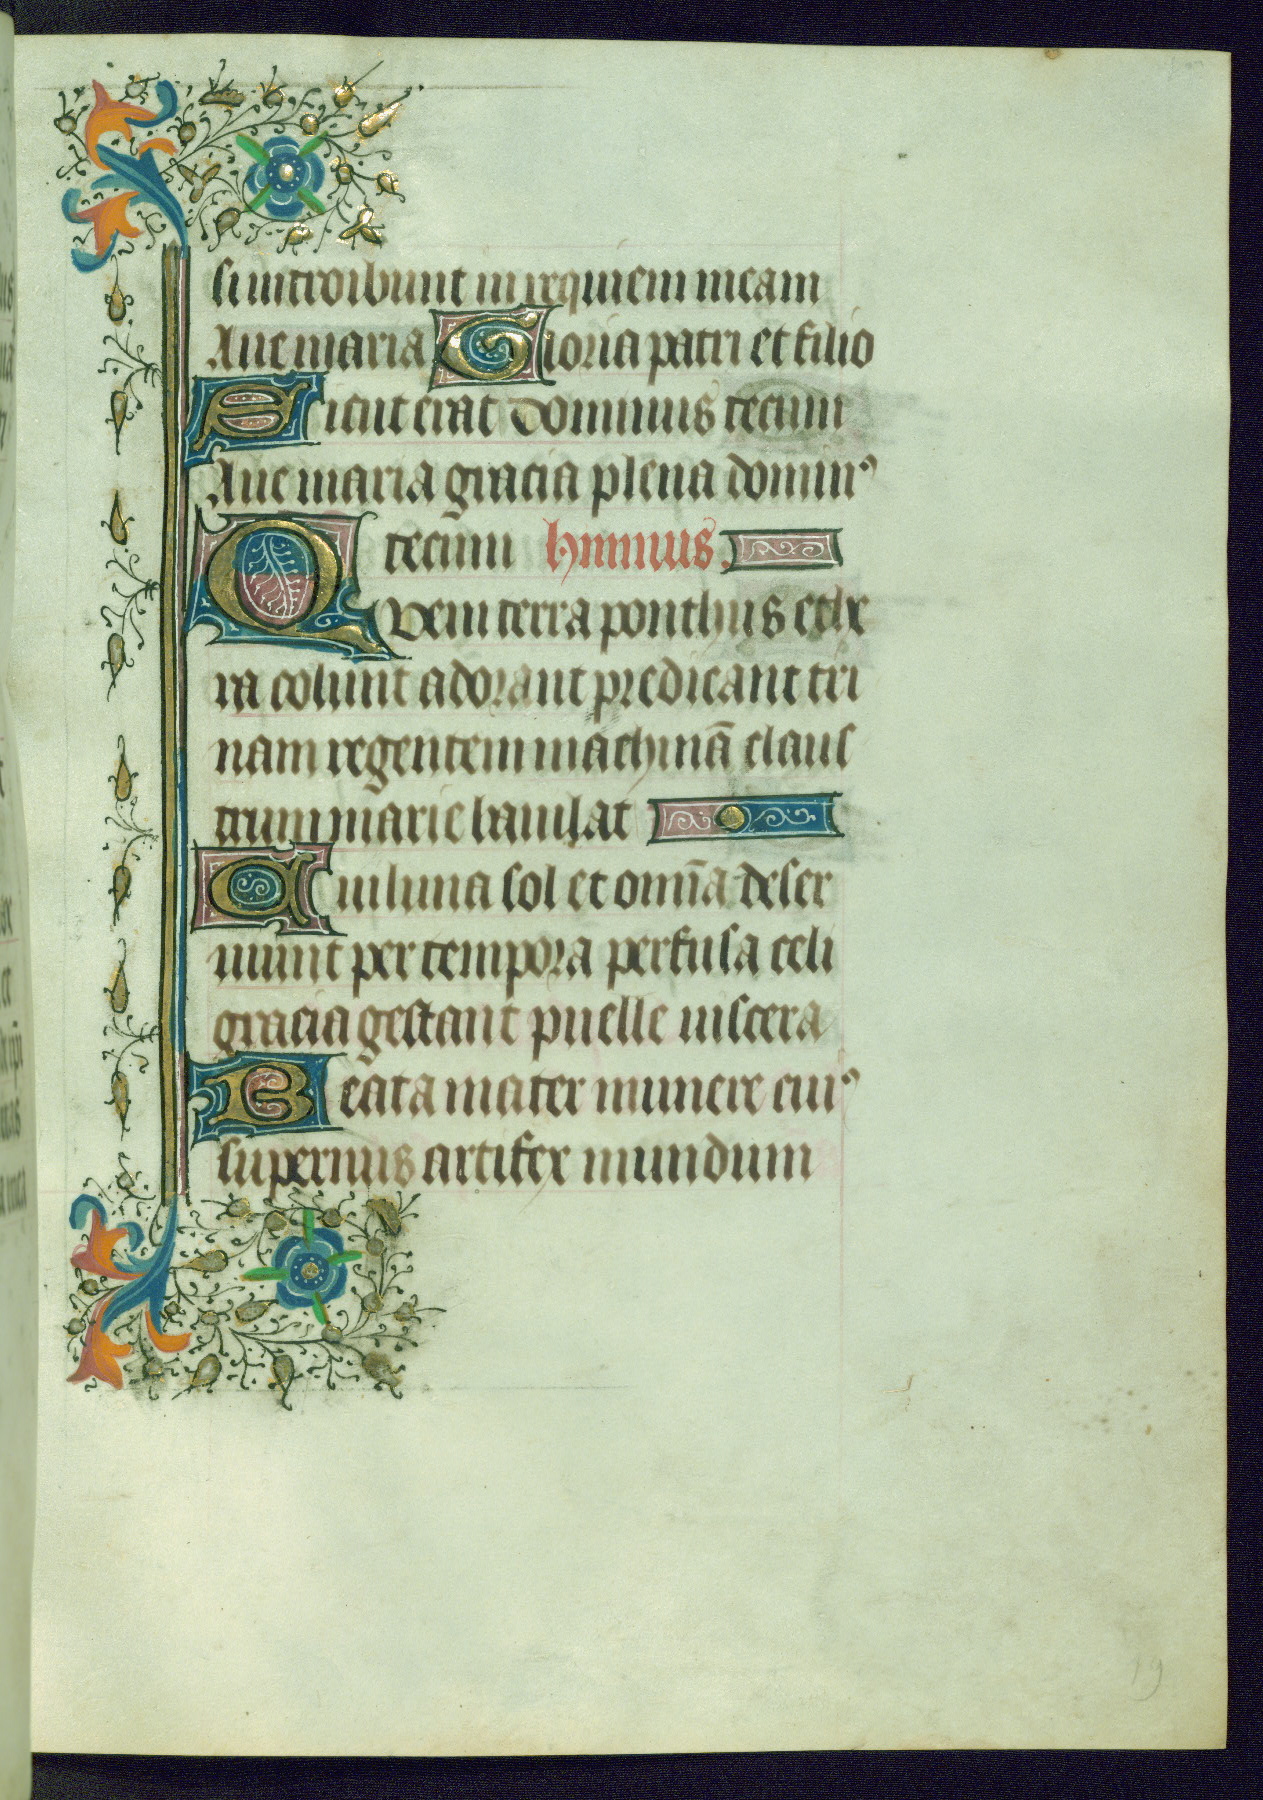 si introibunt in requiem meam
Aue maria Gloria patri et filio
Sicut erat dominus tecum
Aue maria gracia plena dominꝰ
tecum hmnus.
Quem terra ponthus ethe
ra colunt adorant predicant tri
nam regentem machinā claus
trum marie baiulat
Cui luna sol et omīa deser
uiunt per tempora perfusa celi
gracia gestant puelle uiscera
Beata mater munere cuiꝰ
supernus artifex mundum
19